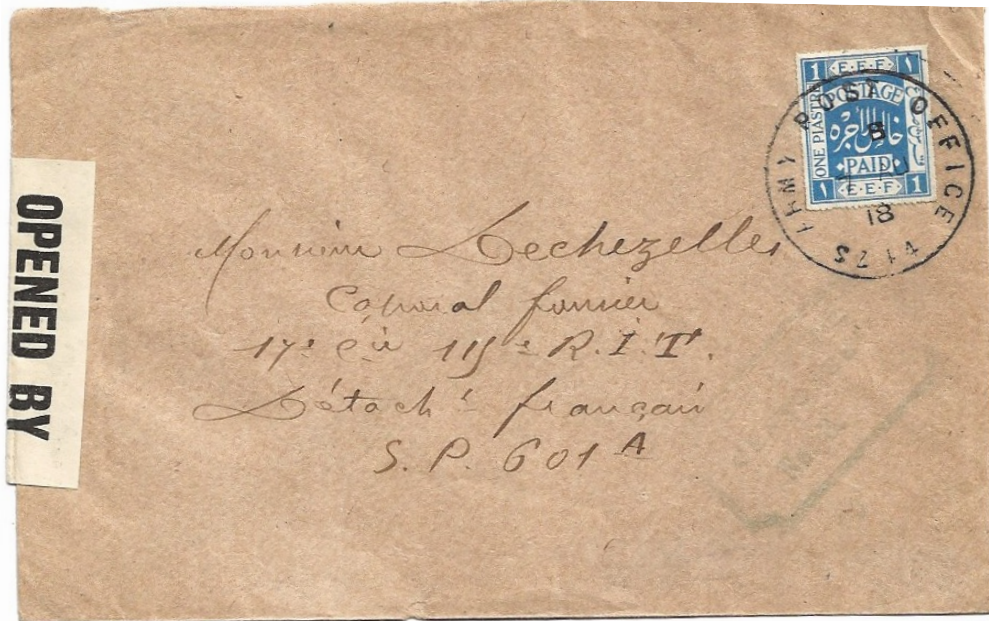 OPENED BY
1 E·E·F ١
POSTAGE
ONE PIASTRE
خالص الاجره
PAID
١ E·E·F 1
ARMY POST OFFICE
8
18
Monsieur Lechezelles
Caporal fourrier
17e Cie 115e R.I.T.
Détacht français
S.P. 601A